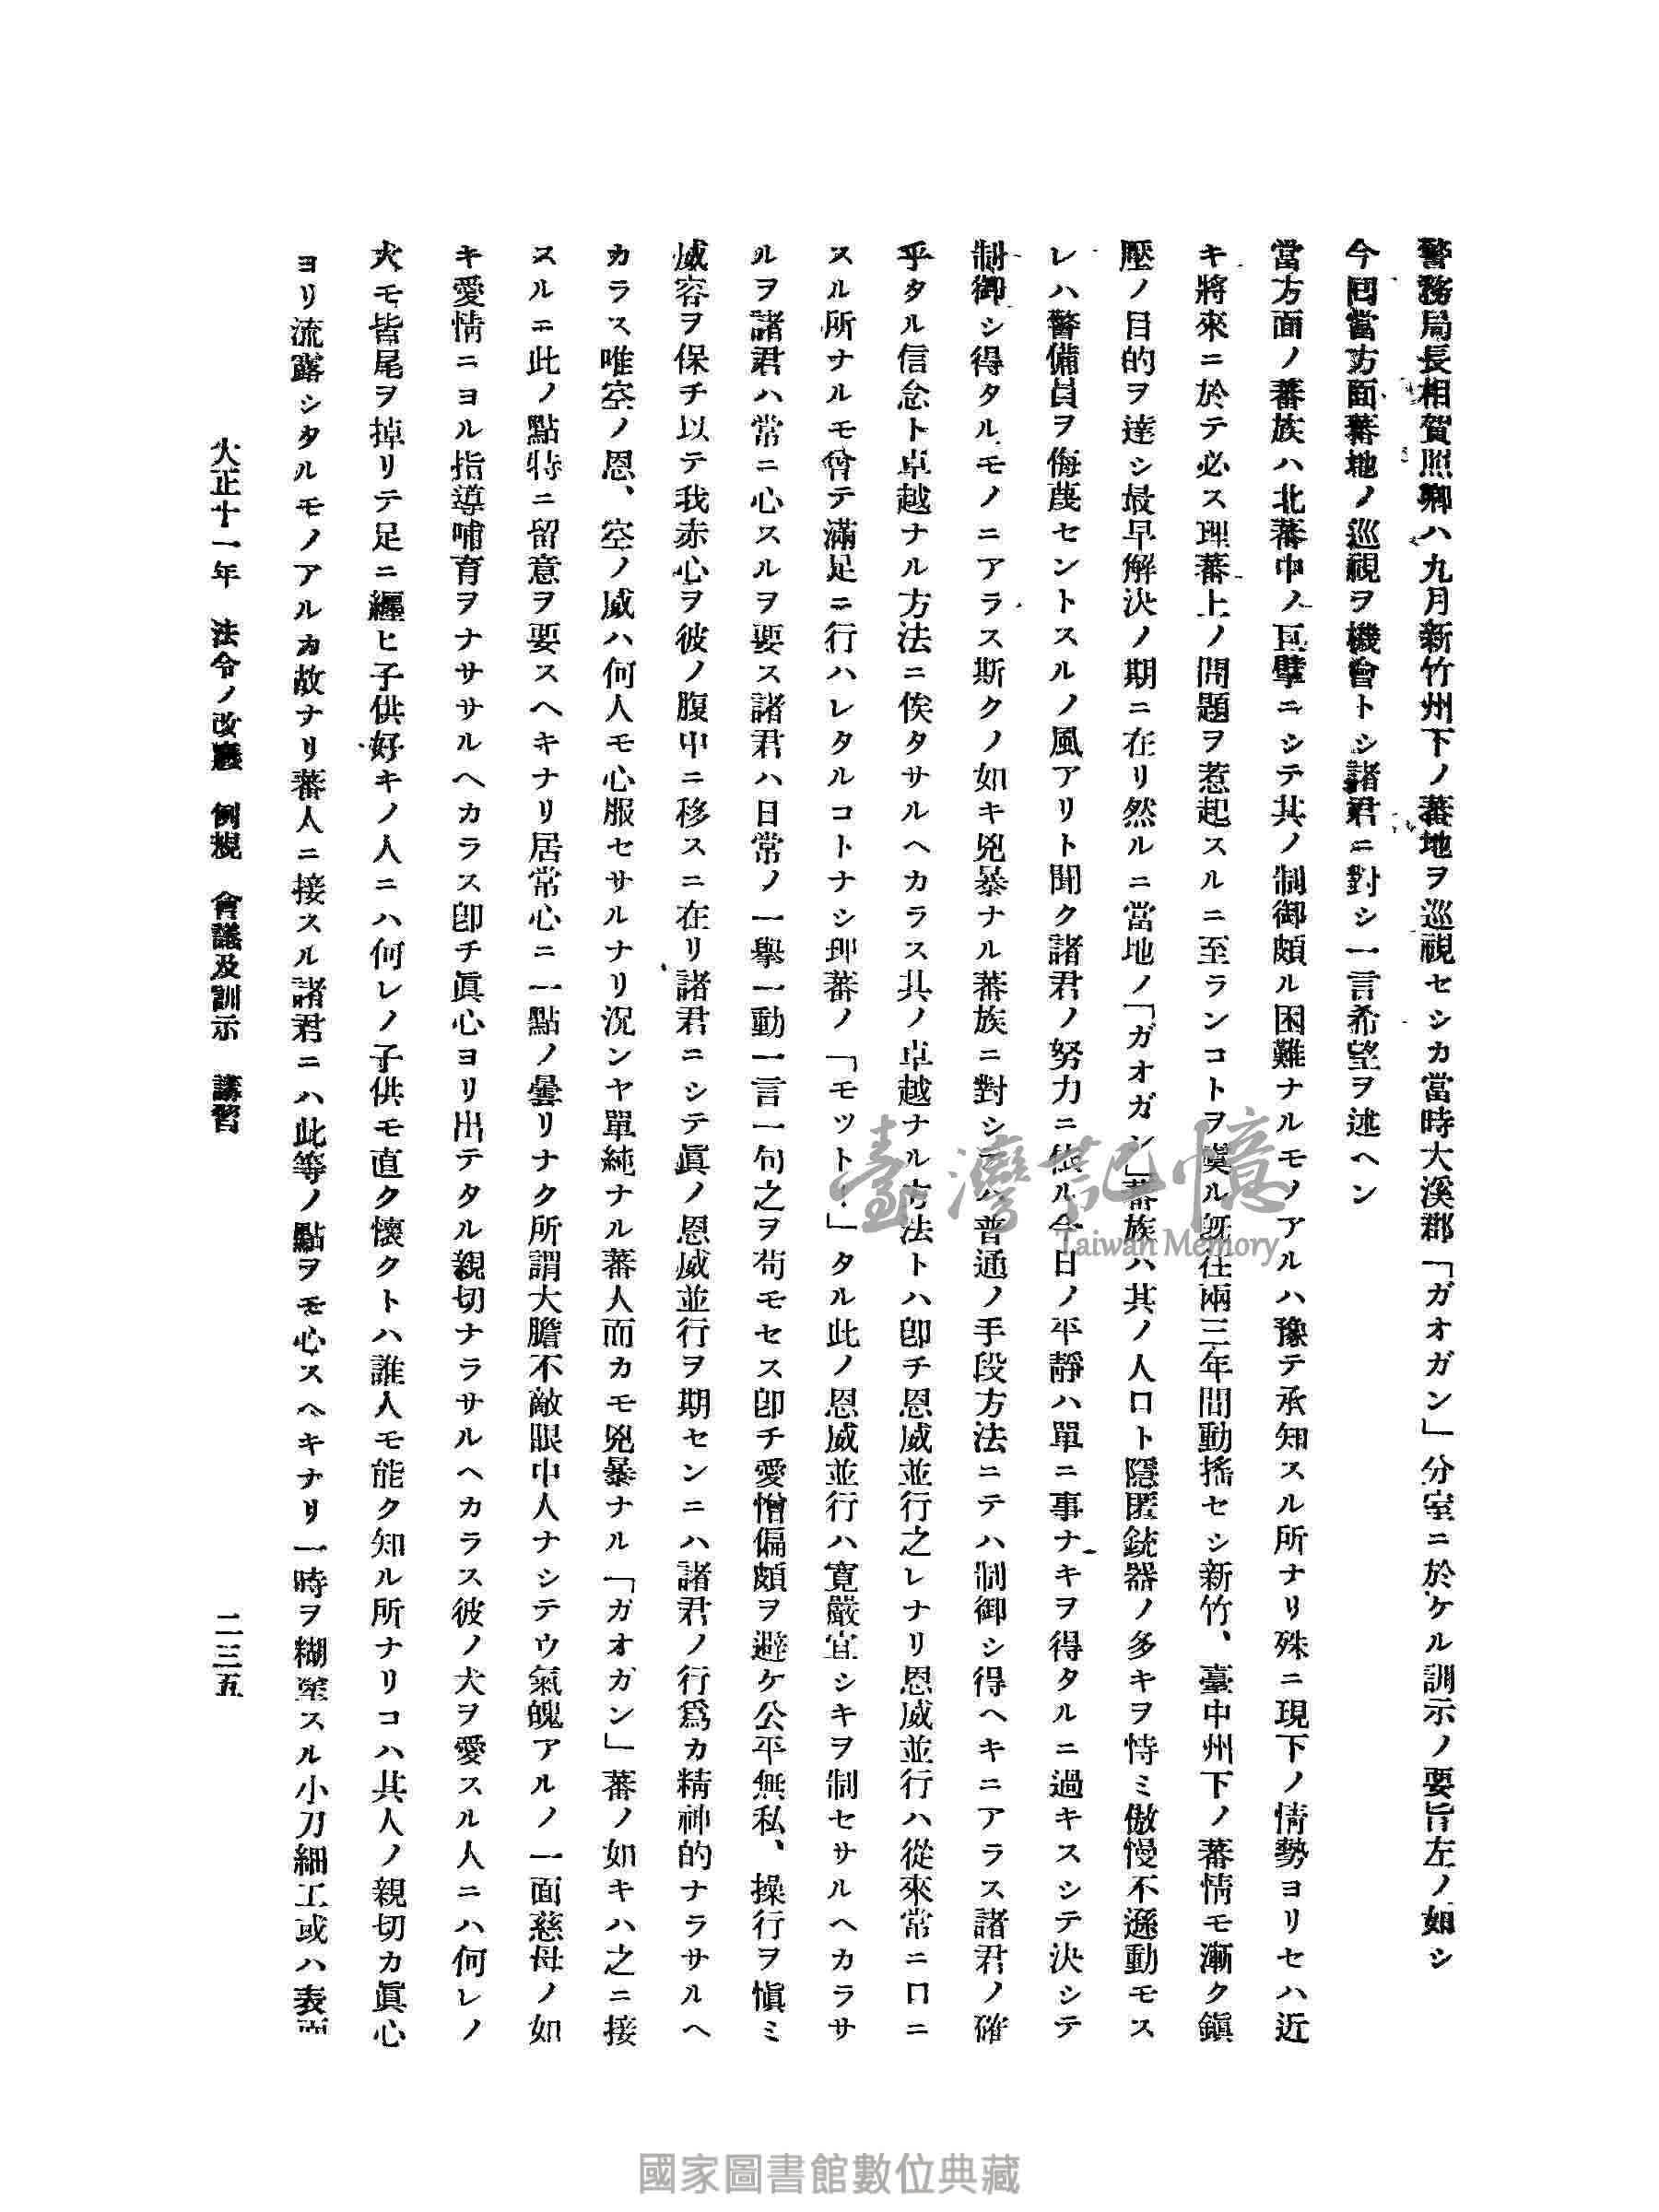 警務局長相賀照鄕ハ九月新竹州下ノ蕃地ヲ巡視セシカ當時大溪郡「ガオガン」分室ニ於ケル訓示ノ要旨左ノ如シ
今回當方面蕃地ノ巡視ヲ機會トシ諸君ニ對シ一言希望ヲ述ヘン
當方面ノ蕃族ハ北蕃中ノ巨擘ニシテ其ノ制御頗ル困難ナルモノアルハ豫テ承知スル所ナリ殊ニ現下ノ情勢ヨリセハ近
キ將來ニ於テ必ス理蕃上ノ問題ヲ惹起スルニ至ランコトヲ虞ル既往兩三年間動搖セシ新竹、臺中州下ノ蕃情モ漸ク鎭
壓ノ目的ヲ達シ最早解決ノ期ニ在リ然ルニ當地ノ「ガオガン」蕃族ハ其ノ人口ト隱匿銃器ノ多キヲ恃ミ傲慢不遜動モス
レハ警備員ヲ侮蔑セントスルノ風アリト聞ク諸君ノ努力ニ依ル今日ノ平靜ハ單ニ事ナキヲ得タルニ過キスシテ決シテ
制御シ得タルモノニアラス斯クノ如キ兇暴ナル蕃族ニ對シテハ普通ノ手段方法ニテハ制御シ得ヘキニアラス諸君ノ確
乎タル信念ト卓越ナル方法ニ俟タサルヘカラス其ノ卓越ナル方法トハ卽チ恩威並行之レナリ恩威並行ハ從來常ニ口ニ
スル所ナルモ曾テ滿足ニ行ハレタルコトナシ卽蕃ノ「モットー」タル此ノ恩威並行ハ寬嚴宜シキヲ制セサルヘカラサ
ルヲ諸君ハ常ニ心スルヲ要ス諸君ハ日常ノ一擧一動一言一句之ヲ苟モセス卽チ愛憎偏頗ヲ避ケ公平無私、操行ヲ愼ミ
威容ヲ保チ以テ我赤心ヲ彼ノ腹中ニ移スニ在リ諸君ニシテ眞ノ恩威並行ヲ期センニハ諸君ノ行爲カ精神的ナラサルヘ
カラス唯空ノ恩、空ノ威ハ何人モ心服セサルナリ況ンヤ單純ナル蕃人而カモ兇暴ナル「ガオガン」蕃ノ如キハ之ニ接
スルニ此ノ點特ニ留意ヲ要スヘキナリ居常心ニ一點ノ曇リナク所謂大膽不敵眼中人ナシテウ氣魄アルノ一面慈母ノ如
キ愛情ニヨル指導哺育ヲナササルヘカラス卽チ眞心ヨリ出テタル親切ナラサルヘカラス彼ノ犬ヲ愛スル人ニハ何レノ
犬モ皆尾ヲ掉リテ足ニ纒ヒ子供好キノ人ニハ何レノ子供モ直ク懷クトハ誰人モ能ク知ル所ナリコハ其人ノ親切カ眞心
ヨリ流露シタルモノアルカ故ナリ蕃人ニ接スル諸君ニハ此等ノ點ヲモ心スヘキナリ一時ヲ糊塗スル小刀細工或ハ表面
大正十一年　法令ノ改廢　例規　會議及訓示　講習
二三五
臺灣記憶
Taiwan Memory
國家圖書館數位典藏